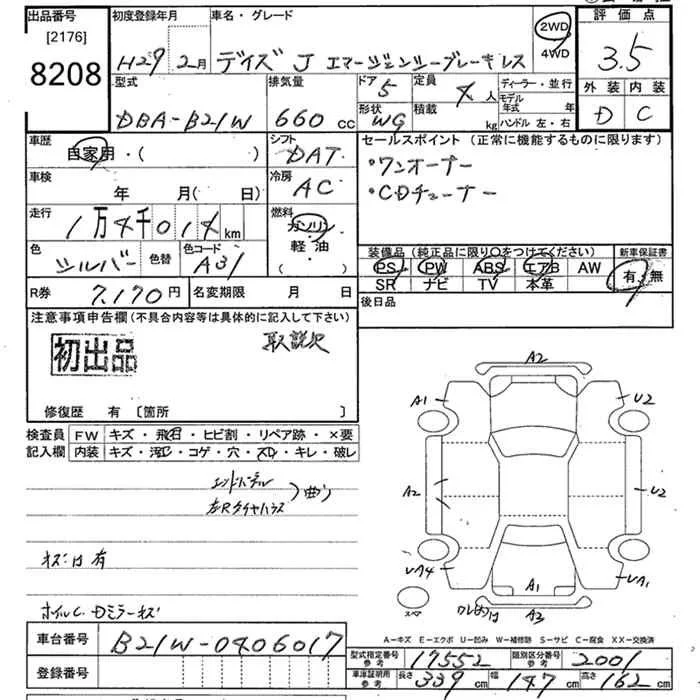 出品番号
[2176]
8208
初度登録年月
H29年 2月
車名・グレード
デイズ J エマージェンシーブレーキレス
2WD
4WD
評価点
3.5
外装 内装
D C
型式
DBA-B21W
排気量
660 cc
ドア
5
形状
WG
定員
4人
積載
kg
ディーラー・並行
モデル年式 年
ハンドル 左・右
車歴
自家用・( )
シフト
DAT
車検
年 月( 日)
冷房
AC
走行
1万4千014km
燃料
ガソリン
軽油
色
シルバー
色替
色コード
A31
セールスポイント(正常に機能するものに限ります)
・ワンオーナー
・CDチューナー
装備品(純正品に限り〇をつけてください)
PS PW ABS エアB AW
SR ナビ TV 本革
新車保証書
有・無
R券
7,170円
名変期限 月 日
後日品
注意事項申告欄(不具合内容等は具体的に記入して下さい)
初出品
取説欠
修復歴 有 [箇所 ]
検査員
記入欄
FW キズ・飛石・ヒビ割・リペア跡・×要
内装 キズ・汚レ・コゲ・穴・スレ・キレ・破レ
エンドパネル
左Rタイヤハウス
曲り
キズ凹有
A2
A1
U2
A2
U2
A1
A3
UA1
スペア
車台番号
B21W-0406017
登録番号
A-キズ E-エクボ U-凹み W-補修跡 S-サビ C-腐食 XX-交換済
型式指定番号
参考
17552
類別区分番号
参考
2001
車庫証明用
参考
長さ 339cm 幅 147cm 高さ 162cm